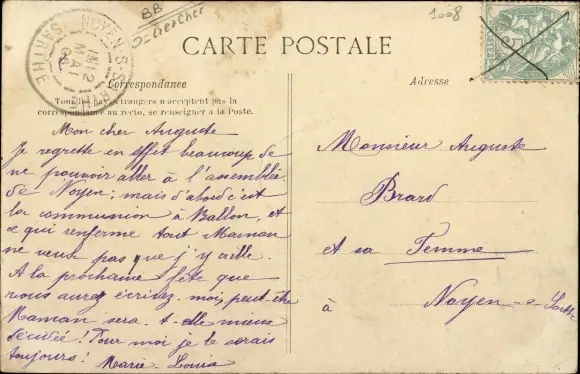 BB
1008
NOYEN-S-SARTHE
12
MAI
06
SARTHE
CARTE POSTALE
Correspondance
Adresse
Tous les pays étrangers n'acceptent pas la
correspondance au recto, se renseigner à la Poste.
Mon cher Auguste
Je regrette en effet beaucoup de
ne pouvoir aller à l'assemblée
de Noyen; mais d'abord c'est
la communion à Ballon, et
ce qui renferme tout Maman
ne veux pas que j'y aille.
A la prochaine fête que
vous aurez écrivez-moi, peut-être
Maman sera-t-elle mieux
décidée! Pour moi je le serais
toujours! Marie-Louis
Monsieur Auguste
Brard
et sa Femme
à Noyen-s-Sarthe